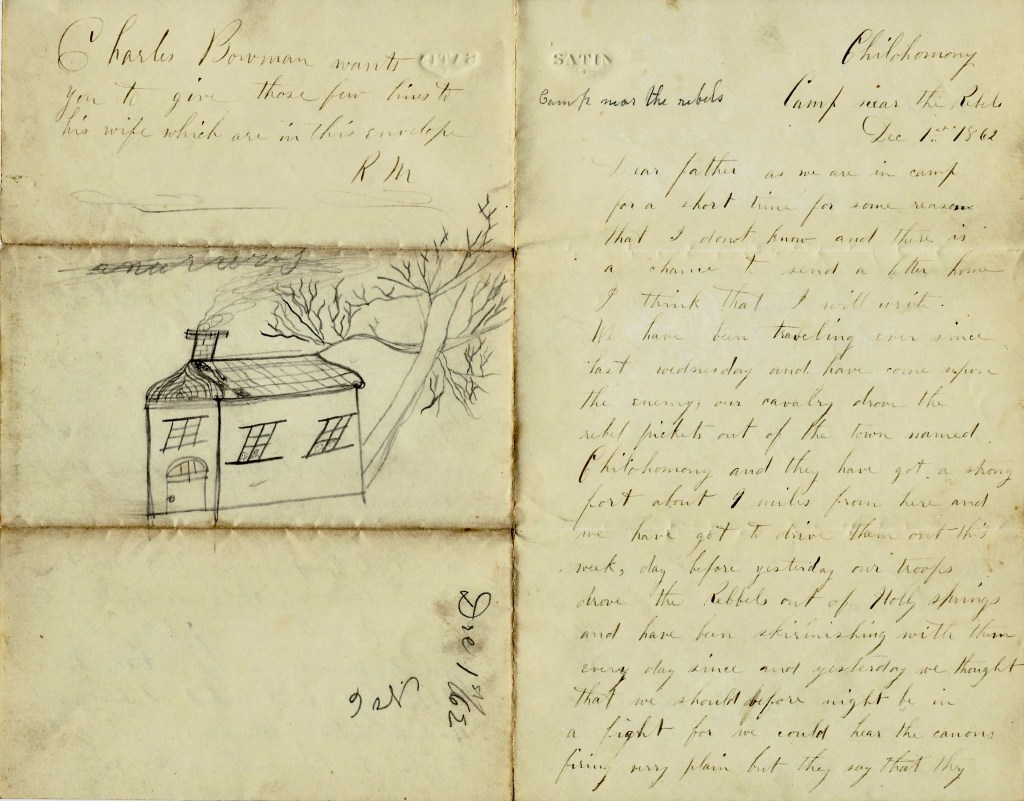 Charles Bowman wants
you to give those few lines to
his wife which are in this envelope
R M
Dec 1st/62
No 6
SATIN
Chilohomony
Camp near the rebels
Camp near the Rebels
Dec 1st 1862
Dear father as we are in camp
for a short time for some reason
that I dondt know and there is
a chance to send a letter home
I think that I will write.
We have been traveling ever since
last wednesday and have come upon
the enemy, our cavalry drove the
rebel pickets out of the town named
Chilohomony and they have got a strong
fort about 9 miles from here and
we have got to drive them out this
week, day before yesterday our troops
drove the Rebbels out of Holly springs
and have been skirmishing with them
every day since and yesterday we thought
that we should before night be in
a fight for we could hear the canons
firing verry plain but they say that they